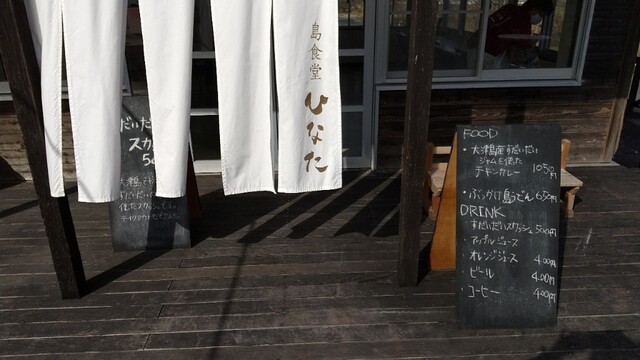 島食堂
ひなた
すだいだい
スカッ
50
大津島で
すだいだい
使ったスカッシュ
FOOD
・大津島産すだいだい
ジャムを使った
チキンカレー 1050円
・ぶっかけ島うどん 650円
DRINK
すだいだいスカッシュ 500円
・アップルジュース
・オレンジジュース 400円
・ビール 400円
・コーヒー 400円